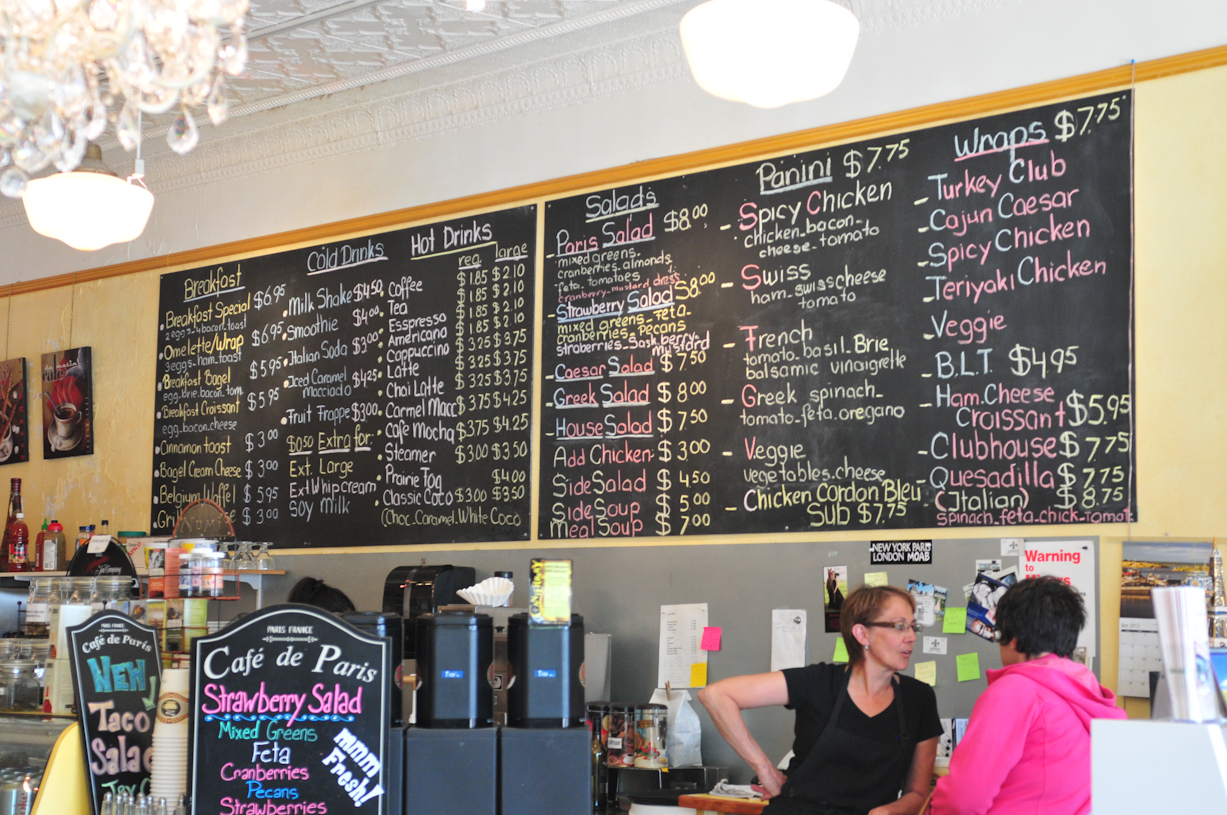 Breakfast
Breakfast Special $6.95
2 eggs - bacon. toast
Omelette/Wrap $6.95
3 eggs. ham. toast
Breakfast Bagel $5.95
egg. brie. bacon. tom
Breakfast Croissant $5.95
egg. bacon. cheese
Cinnamon toast $3.00
Bagel Cream Cheese $3.00
Belgium Waffel $5.95
$3.00
Cold Drinks
Milk Shake $4.50
Smoothie $4.00
Italian Soda $3.00
Iced Caramel $4.25
macciato
Fruit Frappe $3.00
$0.50 Extra for:
Ext. Large
Ext Whip cream
Soy milk
Hot Drinks
reg. large
Coffee $1.85 $2.10
Tea $1.85 $2.10
Espresso $1.85 $2.10
Americano $1.85 $2.10
Cappuccino $3.25 $3.75
Latte $3.25 $3.75
Chai Latte $3.25 $3.75
Carmel Macc $3.75 $4.25
Cafe Mocha $3.75 $4.25
Steamer $3.00 $3.50
Prairie Fog $4.00
Classic Coco $3.00 $3.50
(Choc. Caramel. White Coco
Salads
Paris Salad $8.00
mixed greens.
cranberries. almonds.
feta. tomatoes
cranberry-mustard dress
Strawberry Salad $8.00
mixed greens - feta -
cranberries - pecans
straberries - Sask. berry -
mustard
Caesar Salad $7.50
Greek Salad $8.00
House Salad $7.50
Add Chicken $3.00
Side Salad $4.50
Side Soup $5.00
Meal Soup $7.00
Panini $7.75
- Spicy Chicken
chicken - bacon -
cheese - tomato
- Swiss
ham - swiss cheese
tomato
- French
tomato. basil. Brie
balsamic vinaigrette
- Greek spinach -
tomato - feta. oregano
- Veggie
vegetables. cheese
- Chicken Cordon Bleu
Sub $7.75
Wraps $7.75
- Turkey Club
- Cajun Caesar
- Spicy Chicken
- Teriyaki Chicken
- Veggie
- B.L.T. $4.95
- Ham. Cheese
Croissant $5.95
- Clubhouse $7.75
- Quesadilla $7.75
(Italian) $8.75
spinach. feta. chick. tomato
NEW YORK PARIS
LONDON MOAB
Warning
to
Café de Paris
NEW
Taco
Salad
PARIS FRANCE
Café de Paris
Strawberry Salad
Mixed Greens
Feta
Cranberries
Pecans
Strawberries
mmm
Fresh!